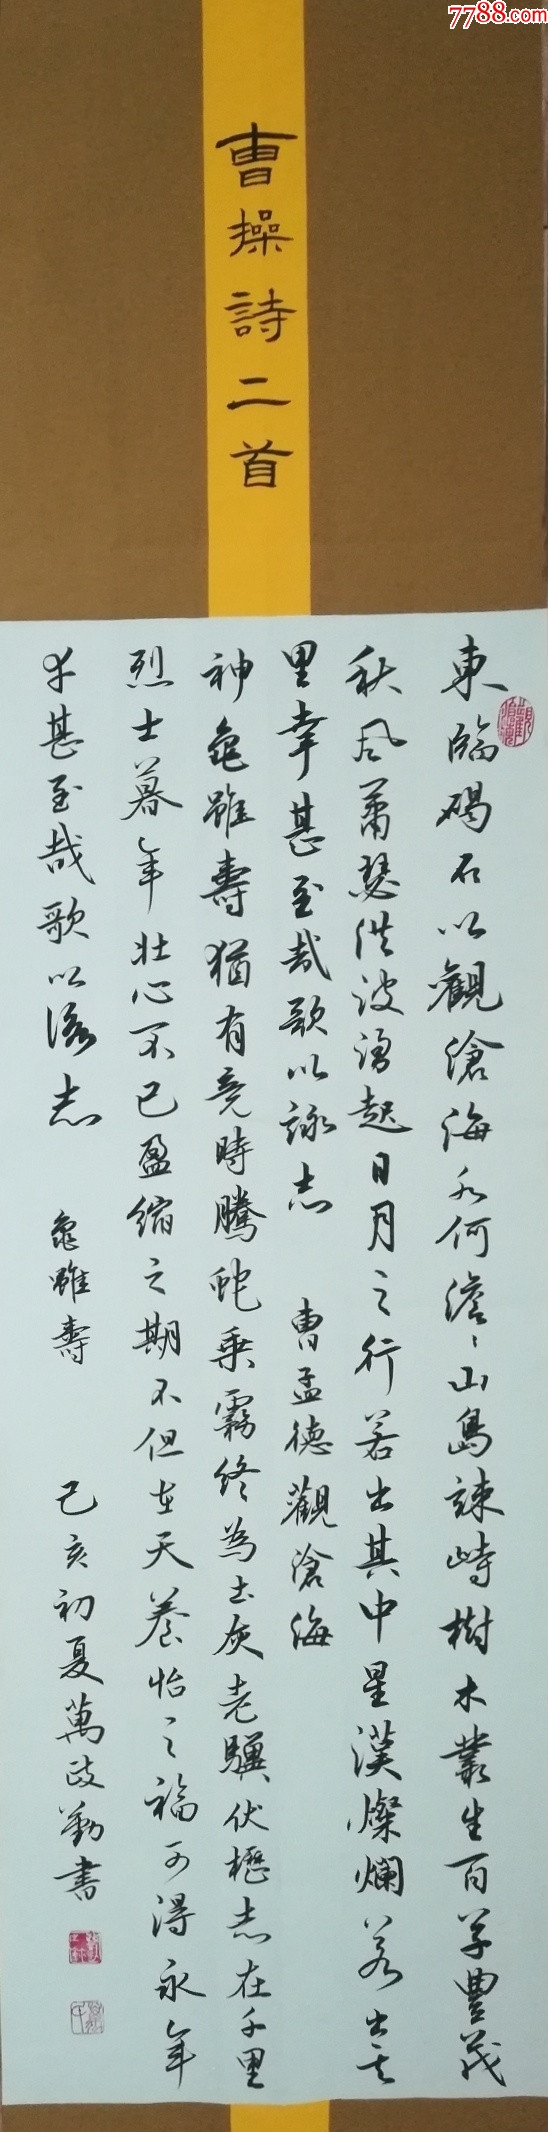 7788.com
曹操詩二首
東臨碣石以觀滄海水何澹〻山島竦峙樹木叢生百草豐茂
秋風蕭瑟洪波湧起日月之行若出其中星漢燦爛若出其
里幸甚至哉歌以詠志 曹孟德觀滄海
神龜雖壽猶有竟時騰蛇乘霧終為土灰老驥伏櫪志在千里
烈士暮年壯心不已盈縮之期不但在天養怡之福可得永年
幸甚至哉歌以詠志 龜雖壽 己亥初夏萬勤書